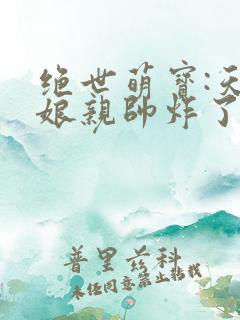 绝世萌寶:天
娘親帥炸了
普里兹科
未经同意禁止转载